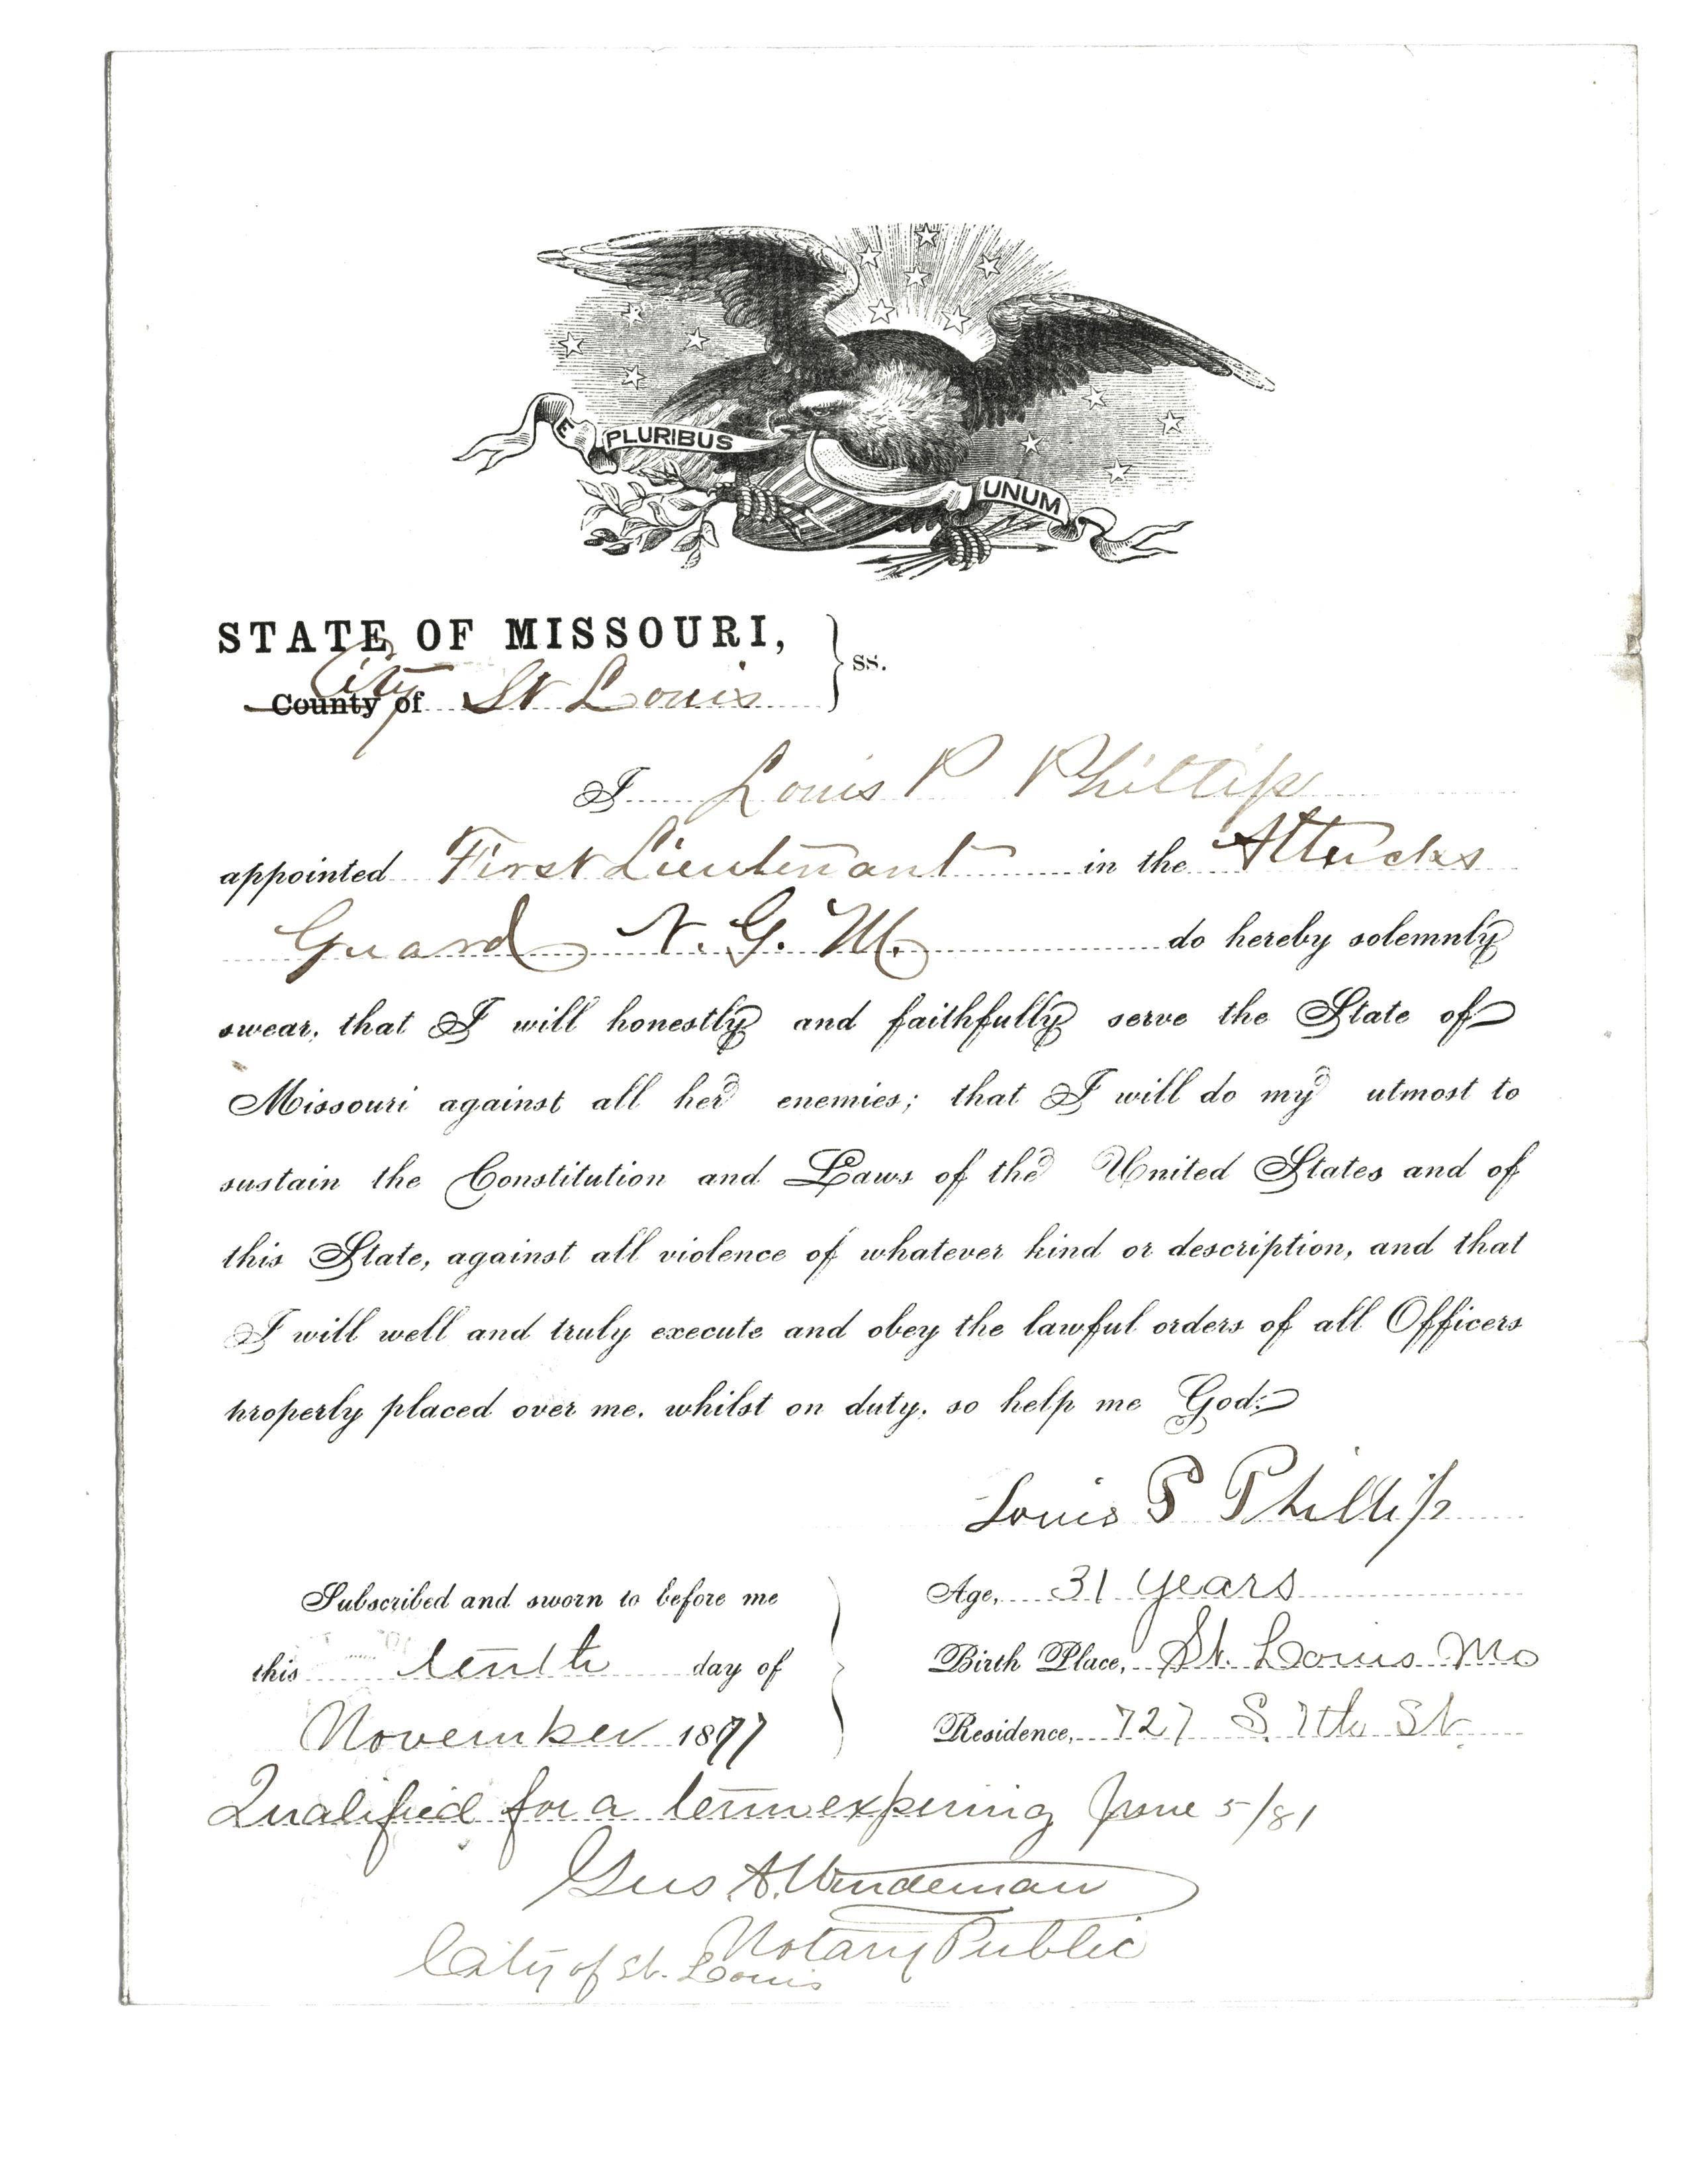 E PLURIBUS UNUM
STATE OF MISSOURI,
City
County of St Louis
ss.
I Louis P Phillips
appointed First Lieutenant in the Attucks
Guard N. G. M. do hereby solemnly
swear, that I will honestly and faithfully serve the State of
Missouri against all her enemies; that I will do my utmost to
sustain the Constitution and Laws of the United States and of
this State, against all violence of whatever kind or description, and that
I will well and truly execute and obey the lawful orders of all Officers
properly placed over me, whilst on duty, so help me God:
Louis P Phillips
Subscribed and sworn to before me
this tenth day of
November 1877
Age, 31 years
Birth Place, St. Louis Mo
Residence, 727 S. 7th St
Qualified for a term expiring June 5/81
Gus A.
Notary Public
City of St. Louis